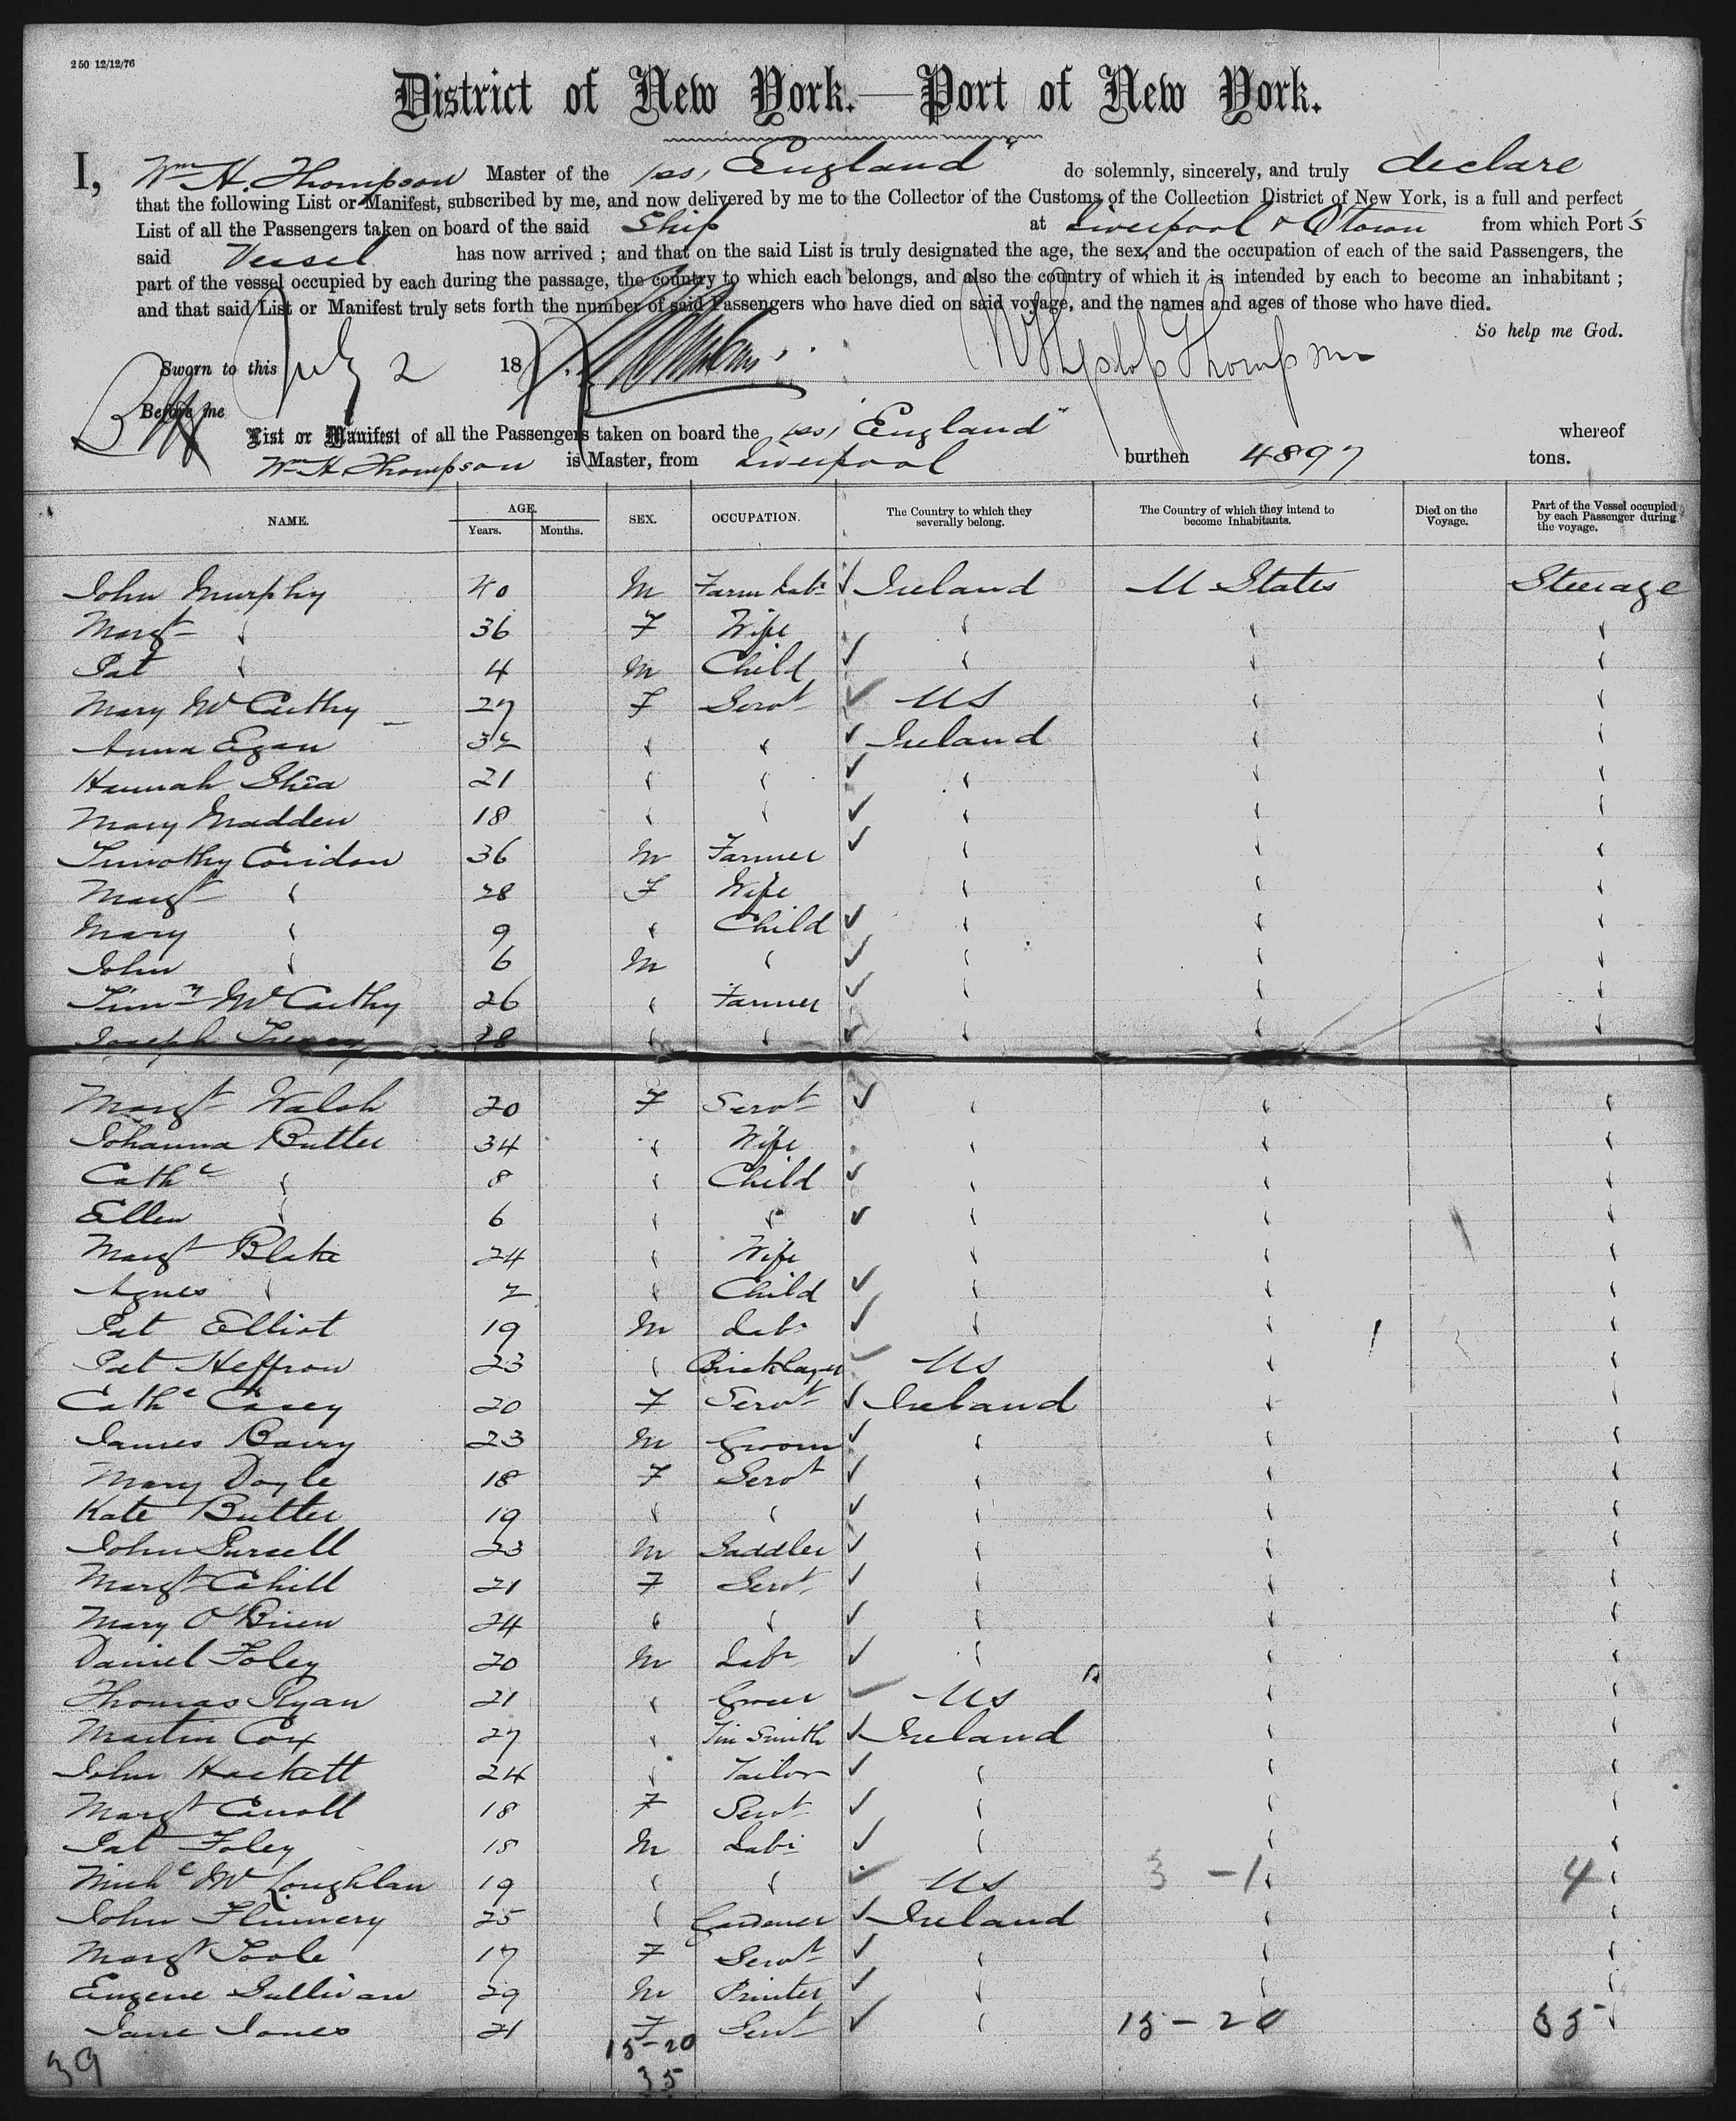 250 12/12/76
District of New York.—Port of New York.
I, Wm H. Thompson Master of the "ss, England" do solemnly, sincerely, and truly declare
that the following List or Manifest, subscribed by me, and now delivered by me to the Collector of the Customs of the Collection District of New York, is a full and perfect
List of all the Passengers taken on board of the said Ship at Liverpool & Qtown from which Port's
said Vessel has now arrived ; and that on the said List is truly designated the age, the sex, and the occupation of each of the said Passengers, the
part of the vessel occupied by each during the passage, the country to which each belongs, and also the country of which it is intended by each to become an inhabitant ;
and that said List or Manifest truly sets forth the number of said Passengers who have died on said voyage, and the names and ages of those who have died.
So help me God.
Sworn to this July 2 1877. Thompson
Before me
List or Manifest of all the Passengers taken on board the "ss, England" whereof
Wm H Thompson is Master, from Liverpool burthen 4897 tons.
NAME. AGE. Years. Months. SEX. OCCUPATION. The Country to which they severally belong. The Country of which they intend to become Inhabitants. Died on the Voyage. Part of the Vessel occupied by each Passenger during the voyage.
John Murphy 40 M Farm Labr ✓ Ireland U States Steerage
Margt " 36 F Wife " " "
Pat " 4 M Child ✓ " " "
Mary McCarthy 27 F Servt ✓ US " "
Anna Egan 32 " " ✓ Ireland " "
Hannah Shea 21 " " ✓ " " "
Mary Madden 18 " " ✓ " " "
Timothy Coridon 36 M Farmer ✓ " " "
Margt " 28 F Wife " " "
Mary " 9 " Child ✓ " " "
John " 6 M " ✓ " " "
Timy McCarthy 26 " Farmer ✓ " " "
Joseph 28 " " ✓ " " "
Margt Walsh 20 F Servt ✓ " " "
Johanna Butler 34 " Wife " " "
Cathe " 8 " Child ✓ " " "
Ellen " 6 " " ✓ " " "
Margt Blake 24 " Wife " " "
Agnes " 2 " Child ✓ " " "
Pat Elliot 19 M Labr ✓ " " "
Pat Heffron 23 " Bricklayer ✓ US " "
Cathe Casey 20 F Servt ✓ Ireland " "
James Barry 23 M Groom ✓ " " "
Mary Doyle 18 F Servt ✓ " " "
Kate Butler 19 " " ✓ " " "
John Pursell 23 M Saddler ✓ " " "
Margt Cahill 21 F Servt ✓ " " "
Mary O'Brien 24 " " ✓ " " "
Daniel Foley 20 M Labr ✓ " " "
Thomas Ryan 21 " Grocer ✓ US " "
Martin Cox 27 " Tin Smith ✓ Ireland " "
John Hackett 24 " Tailor ✓ " " "
Margt Carroll 18 F Servt ✓ " " "
Pat Foley 18 M Labr ✓ " " "
Michl McLoughlan 19 " " ✓ US 3 - 1 " 4 "
John Flinnery 25 " Gardener ✓ Ireland " "
Margt Toole 17 F Servt ✓ " " "
Eugene Sullivan 29 M Printer ✓ " " "
Jane Jones 21 F Servt ✓ " 15 - 20 35 "
39 15-20
35